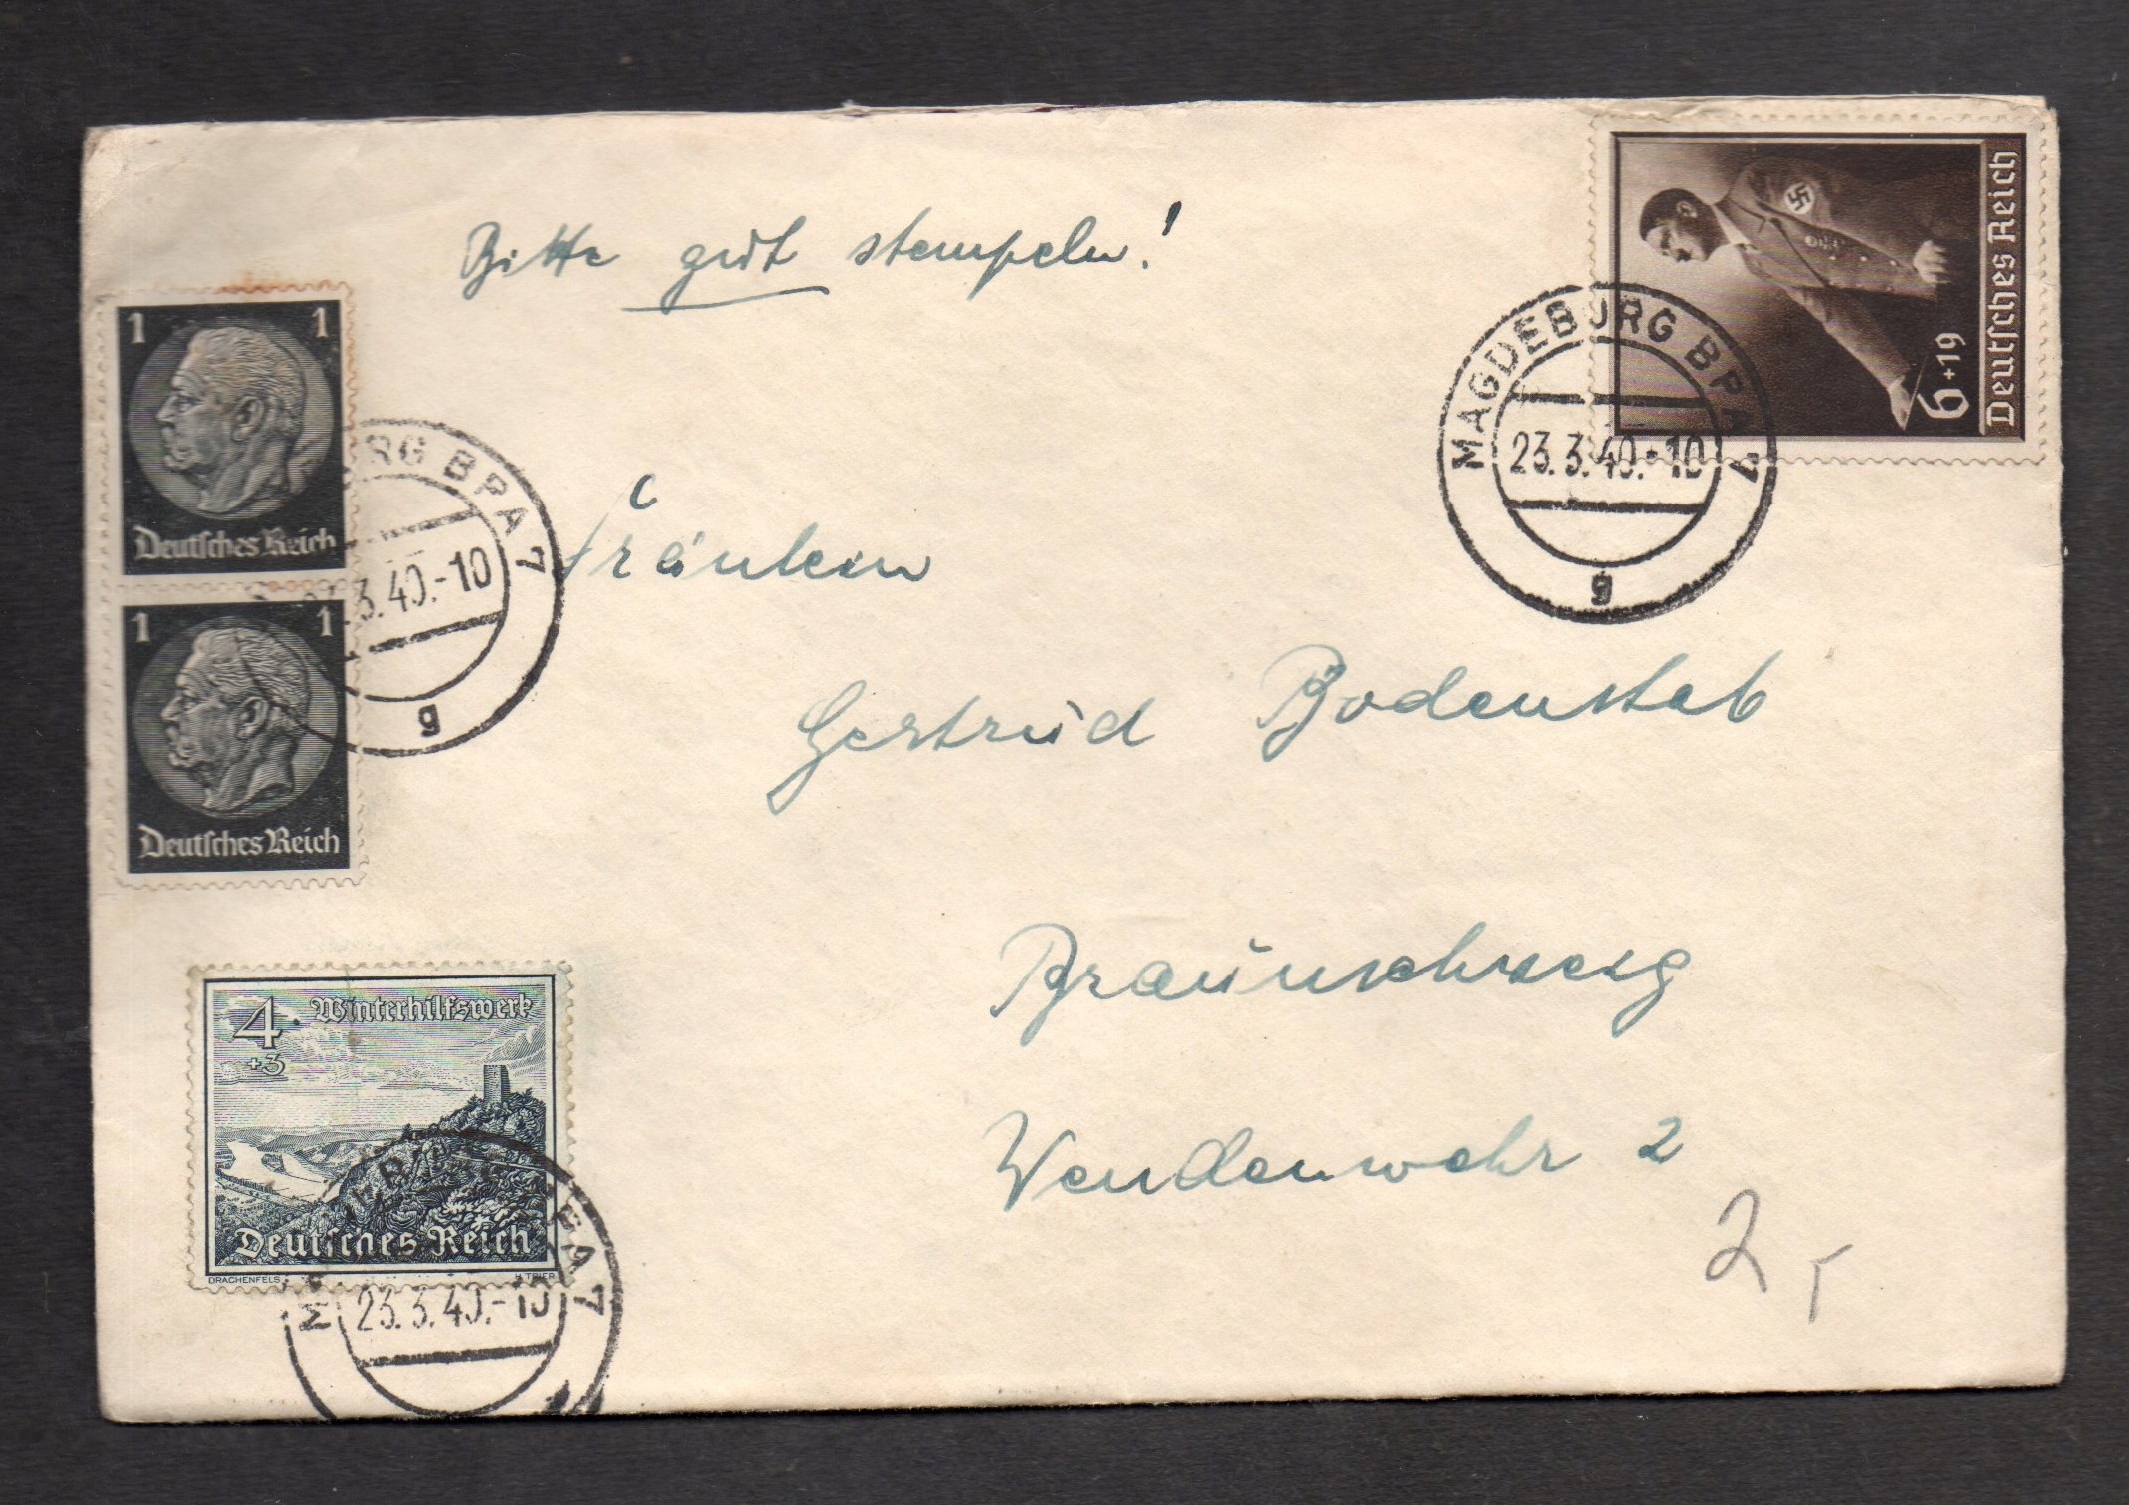 Bitte gut stempeln!
Deutsches Reich
6+19
MAGDEBURG BPA 7
23.3.40.-10
g
1 1
Deutsches Reich
1 1
Deutsches Reich
BURG BPA 7
3.40.-10
g
Fräulein
Gertrud Bodenstab
Braunschweig
Wendenwehr 2
2,-
4 Winterhilfswerk
+3
Deutsches Reich
DRACHENFELS
TRIER
23.3.40.-10